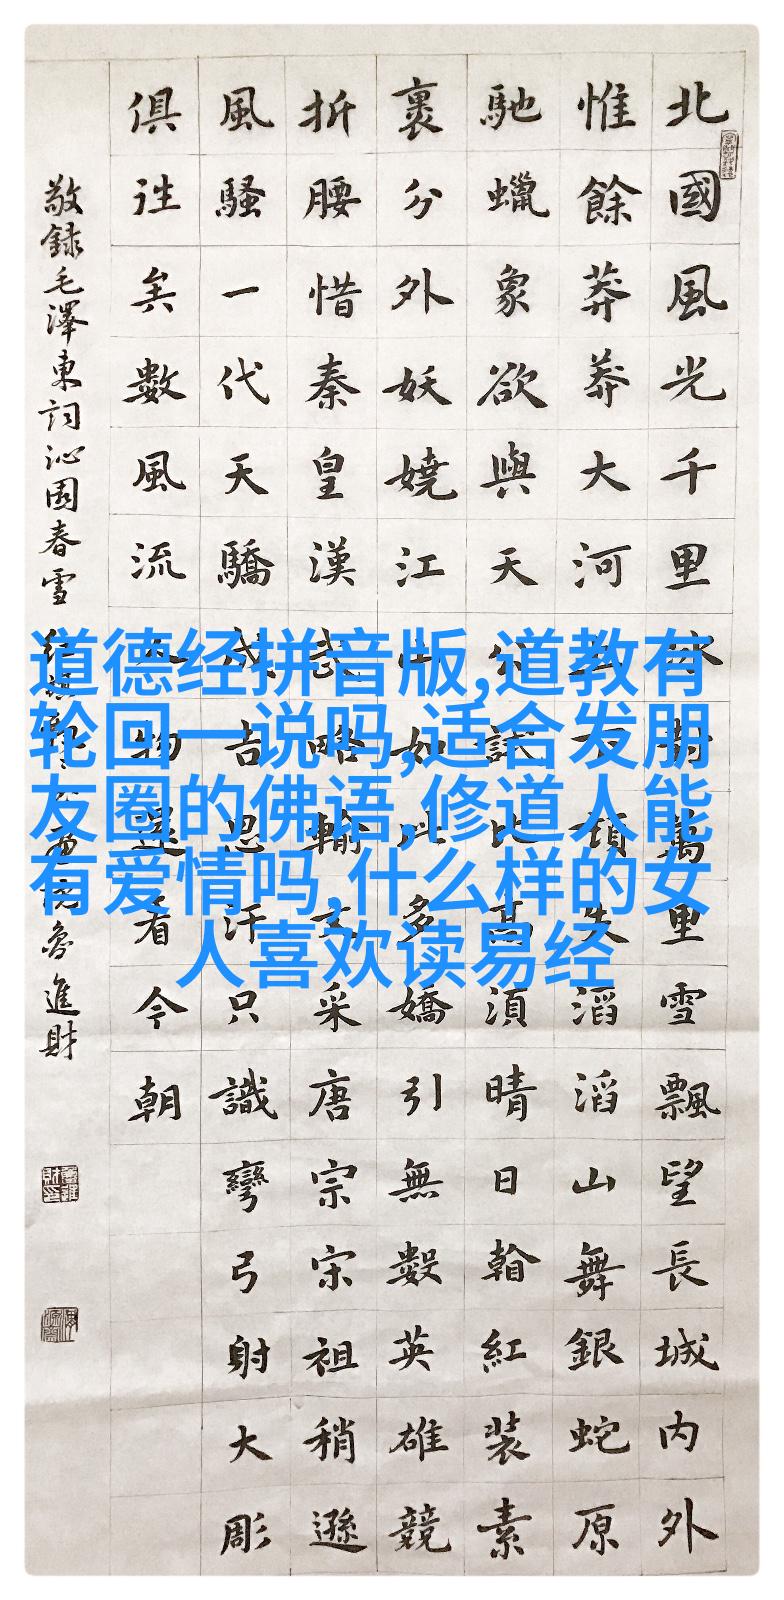 北國風光千里冰封萬里雪飄望長城内外
惟餘莽莽大河上下頓失滔滔山舞銀蛇原
馳蠟象欲與天公試比高須晴日看紅装素
裹分外妖嬈江山如此多嬌引無數英雄競
折腰惜秦皇漢武略輸文采唐宗宋祖稍遜
風騷一代天驕成吉思汗只識彎弓射大彫
俱往矣數風流人物還看今朝
敬録毛澤東詞沁園春雪 魯進財
道德经拼音版,道教有
轮回一说吗,适合发朋
友圈的佛语,修道人能
有爱情吗,什么样的女
人喜欢读易经